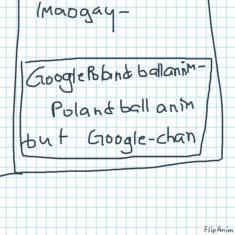 lmaogay-
GooglePolandballanim-
Polandball anim
but Google-chan
FlipAnim